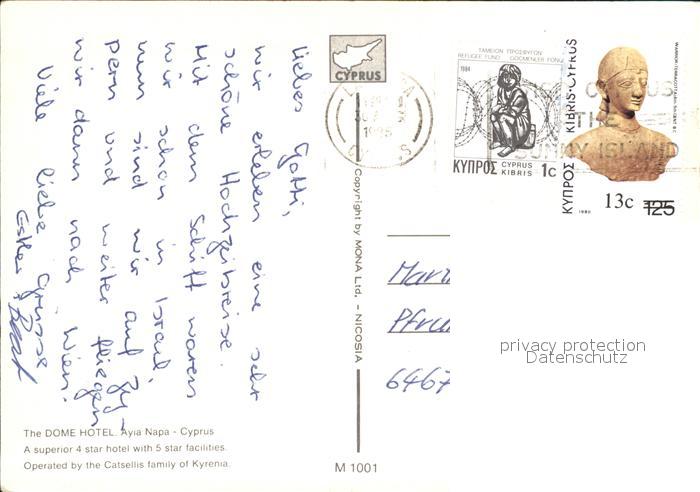 Liebes Gotti,
wir erleben eine sehr
schöne Hochzeitsreise.
Mit dem Schiff waren
wir schon in Israel,
nun sind wir auf Zy-
pern und weiter fliegen
wir dann nach Wien.
Viele liebe Grüsse
Esther
CYPRUS
1995
Copyright by MONA Ltd, - NICOSIA
ΤΑΜΕΙΟΝ ΠΡΟΣΦΥΓΩΝ
REFUGEE FUND GÖÇMENLER FONU
1984
ΚΥΠΡΟΣ CYPRUS KIBRIS 1c
ΚΥΠΡΟΣ KIBRIS-CYPRUS
1980
13c 125
THE
SUNNY ISLAND
Pfru
6467
privacy protection
Datenschutz
The DOME HOTEL. Ayia Napa - Cyprus
A superior 4 star hotel with 5 star facilities.
Operated by the Catsellis family of Kyrenia.
M 1001